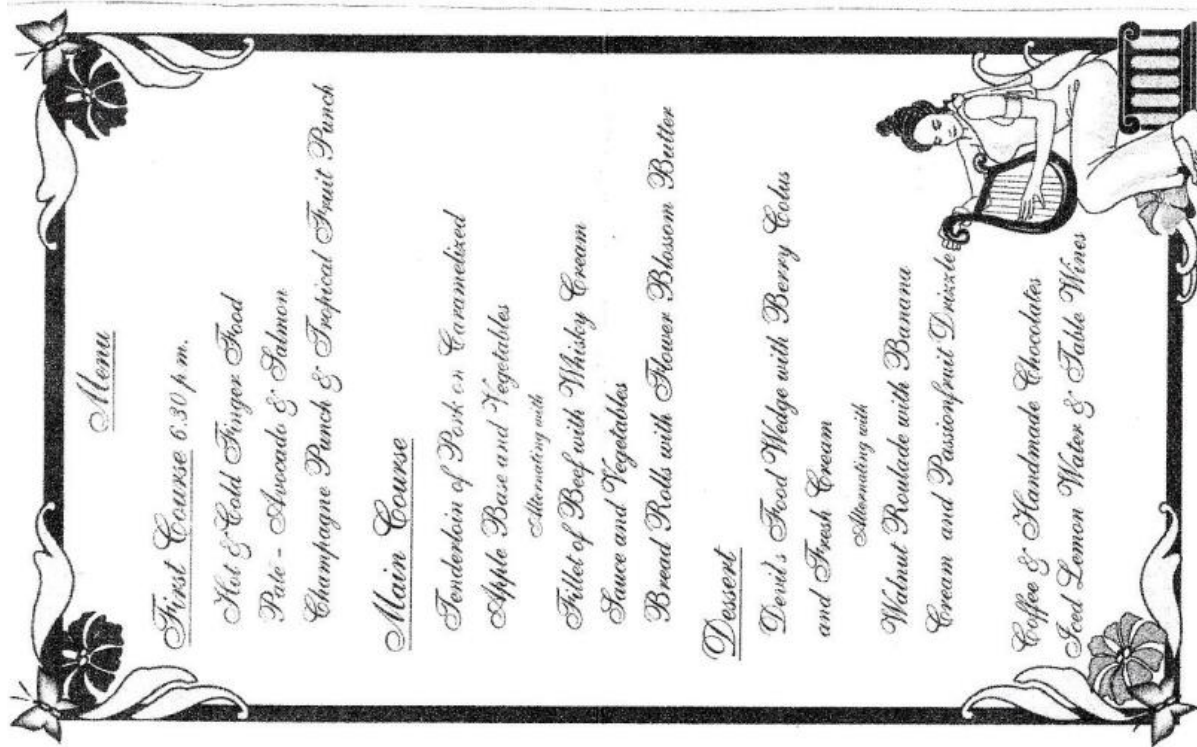 Menu
First Course 6.30 p.m.
Hot & Cold Finger Food
Paté - Avocado & Salmon
Champagne Punch & Tropical Fruit Punch
Main Course
Tenderloin of Pork on Caramelized
Apple Base and Vegetables
Alternating with
Fillet of Beef with Whisky Cream
Sauce and Vegetables
Bread Rolls with Flower Blossom Butter
Dessert
Devil's Food Wedge with Berry Colus
and Fresh Cream
Alternating with
Walnut Roulade with Banana
Cream and Passionfruit Drizzle
Coffee & Handmade Chocolates
Iced Lemon Water & Table Wines